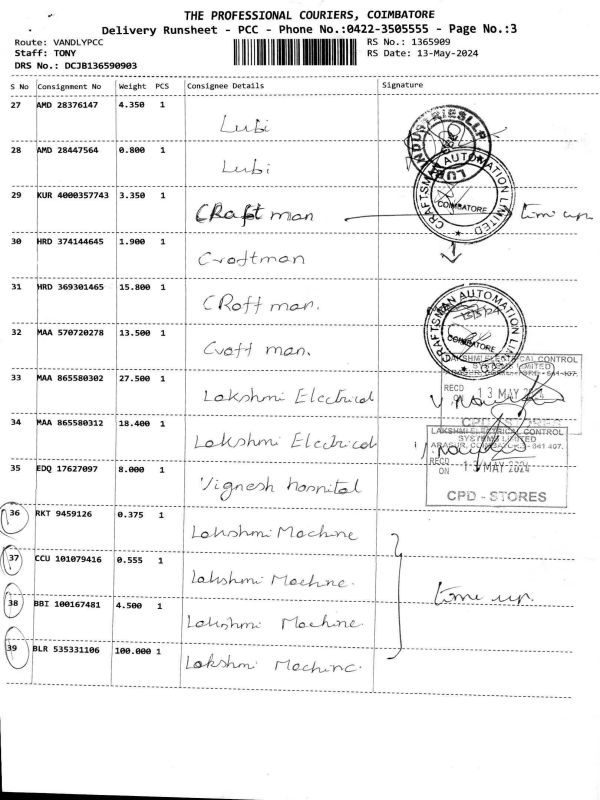 THE PROFESSIONAL COURIERS, COIMBATORE
Delivery Runsheet - PCC - Phone No.:0422-3505555 - Page No.:3
Route: VANDLYPCC
Staff: TONY
DRS No.: DCJB136590903
RS No.: 1365909
RS Date: 13-May-2024
S No Consignment No Weight PCS Consignee Details Signature
27 AMD 28376147 4.350 1 Lubi
28 AMD 28447564 0.800 1 Lubi
INDUSTRIES LLP
CRAFTSMAN AUTOMATION LIMITED
COIMBATORE
29 KUR 4000357743 3.350 1 CRaft man time up
30 HRD 374144645 1.900 1 Craftman
31 HRD 369301465 15.800 1 CRaft man.
CRAFTSMAN AUTOMATION
COIMBATORE
32 MAA 570720278 13.500 1 Craft man.
33 MAA 865580302 27.500 1 Lakshmi Electrical
LAKSHMI ELECTRICAL CONTROL
SYSTEMS LIMITED
RECD 13 MAY 2024
34 MAA 865580312 18.400 1 Lakshmi Electrical
LAKSHMI ELECTRICAL CONTROL
SYSTEMS LIMITED
RECD
ON 13 MAY 2024
CPD - STORES
35 EDQ 17627097 8.000 1 Vignesh hospital
36 RKT 9459126 0.375 1 Lakshmi Machine
37 CCU 101079416 0.555 1 Lakshmi Machine.
38 BBI 100167481 4.500 1 Lakshmi Machine. time up.
39 BLR 535331106 100.000 1 Lakshmi Machine.